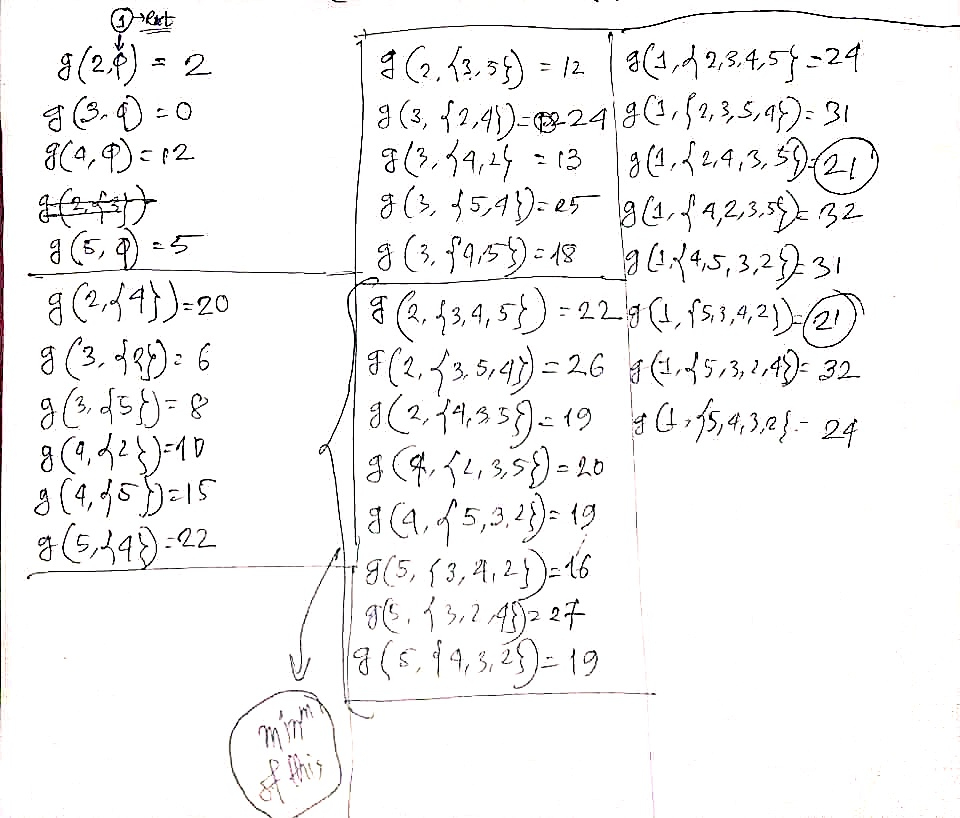 1 → Root
g(2,φ) = 2
g(3,φ) = 0
g(4,φ) = 12
g(2,{3})
g(5,φ) = 5
g(2,{4}) = 20
g(3,{2}) = 6
g(3,{5}) = 8
g(4,{2}) = 10
g(4,{5}) = 15
g(5,{4}) = 22
g(2,{3,5}) = 12
g(3,{2,4}) = 24
g(3,{4,2} = 13
g(3,{5,4}) = 25
g(3,{4,5}) = 18
g(2,{3,4,5}) = 22
g(2,{3,5,4}) = 26
g(2,{4,3,5}) = 19
g(4,{2,3,5}) = 20
g(4,{5,3,2}) = 19
g(5,{3,4,2}) = 16
g(5,{3,2,4}) = 27
g(5,{4,3,2}) = 19
minm
of this
g(1,{2,3,4,5} = 24
g(1,{2,3,5,4}) = 31
g(1,{2,4,3,5}) = 21
g(1,{4,2,3,5}) = 32
g(1,{4,5,3,2}) = 31
g(1,{5,3,4,2}) = 21
g(1,{5,3,2,4}) = 32
g(1,{5,4,3,2} = 24